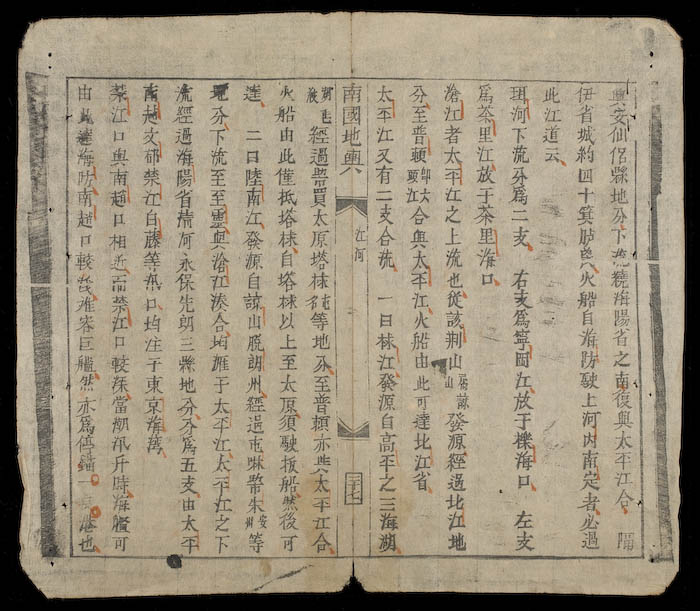 興安仙侶縣地分下流繞海陽省之南復與太平江合 隔
伊省城約四十箕臚與火船自海防駛上河內南定者必過
此江道云
珥河下流分爲二支 右支爲寧 江放于 海口 左支
爲茶里江放于茶里海口
滄江者太平江之上流也從該荆山 屬諒山 發源經過北江地
分至普頼 卽六頭江 合與太平江火船由此可達北江省
太平江又有二支合流 一曰梂江發源自高平之三海湖
南國地輿 江河 二十七
經過 買太原塔梂 等地分至普頼亦與太平江合
火船由此僅抵塔梂自塔梂以上至太原須駛板船然後可
達 二曰陸南江發源自諒山脫朗州經過屯 幣朱 安州 等
地分下流至至靈與滄江湊合均雁于太平江太平江之下
流經過海陽省清河永保先朗三縣地分分爲五支由太平
南趙文郁禁江自藤等 口均注于東京海灣
禁江口與南趙口相近而禁江口較深當潮汛升時海艚可
由此達海防南趙口較 难容巨艦然亦爲停 一 港也